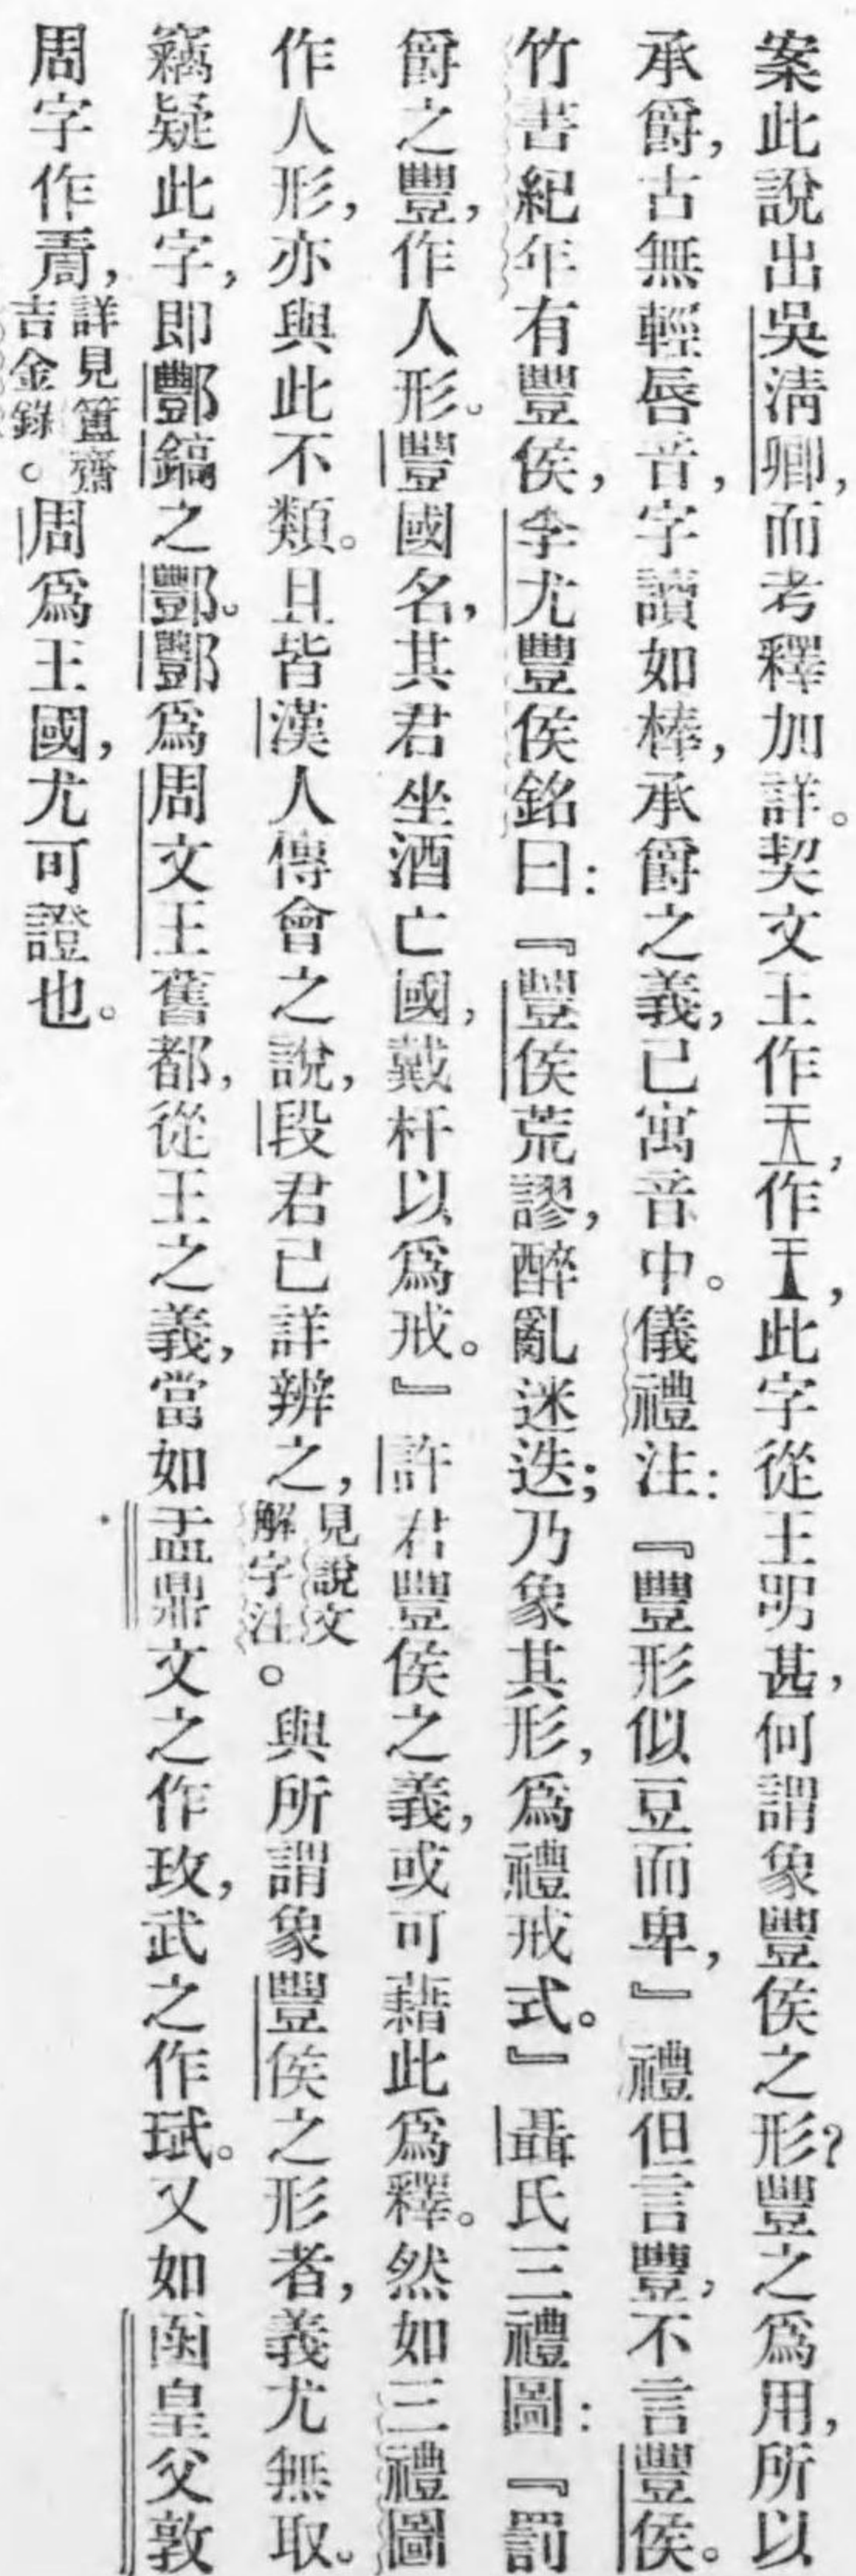 案此說出吳清卿，而考釋加詳。契文王作，作，此字從王明甚，何謂象豐侯之形？豐之爲用，所以
承爵，古無輕唇音，字讀如棒，承爵之義，已寓音中。儀禮注：『豐形似豆而卑，』禮但言豐，不言豐侯。
竹書紀年有豐侯，李尤豐侯銘曰：『豐侯荒謬，醉亂迷迭；乃象其形，爲禮戒式。』聶氏三禮圖：『罰
爵之豐，作人形。豐國名，其君坐酒亡國，戴杆以爲戒。』許君豐侯之義，或可藉此爲釋。然如三禮圖
作人形，亦與此不類。且皆漢人傅會之說，段君已詳辨之，見說文解字注。與所謂象豐侯之形者，義尤無取。
竊疑此字，即酆鎬之酆。酆爲周文王舊都，從王之義，當如盂鼎文之作玟，武之作珷。又如圅皇父敦
周字作，詳見簠齋吉金錄。周爲王國，尤可證也。